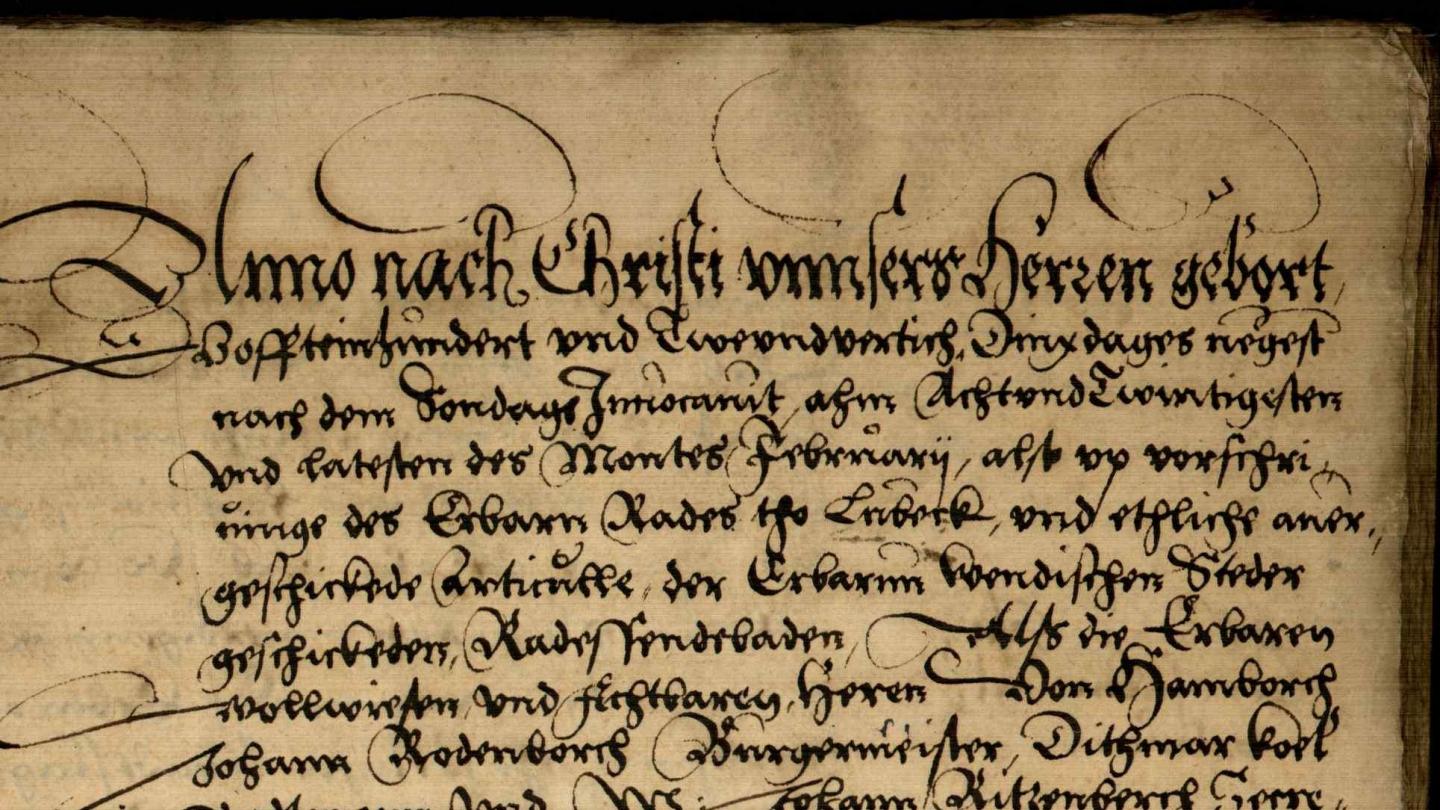 Anno nach Christi vnnsers Herren gebort,
Voffteinhundert vnd Twevndvertich, Dinxdages negest
nach dem Sondage Inuocauit, ahm Achtvnd Twintigesten
vnd latesten des Montes Februarij, alse vp vorschri,
uinge des Erbarn Rades tho Lubeck, vnd ethliche auer,
geschickede Articull, der Erbarnn Wendischen Steder
geschickeden, Radessendebaden, Alss die Erbaren
vollwiesen vnd Achtbaren, Heren Von Hamborch
Johann Rodenborch Burgermeister, Dithmar Koel
vnd Johann Ritzenberch